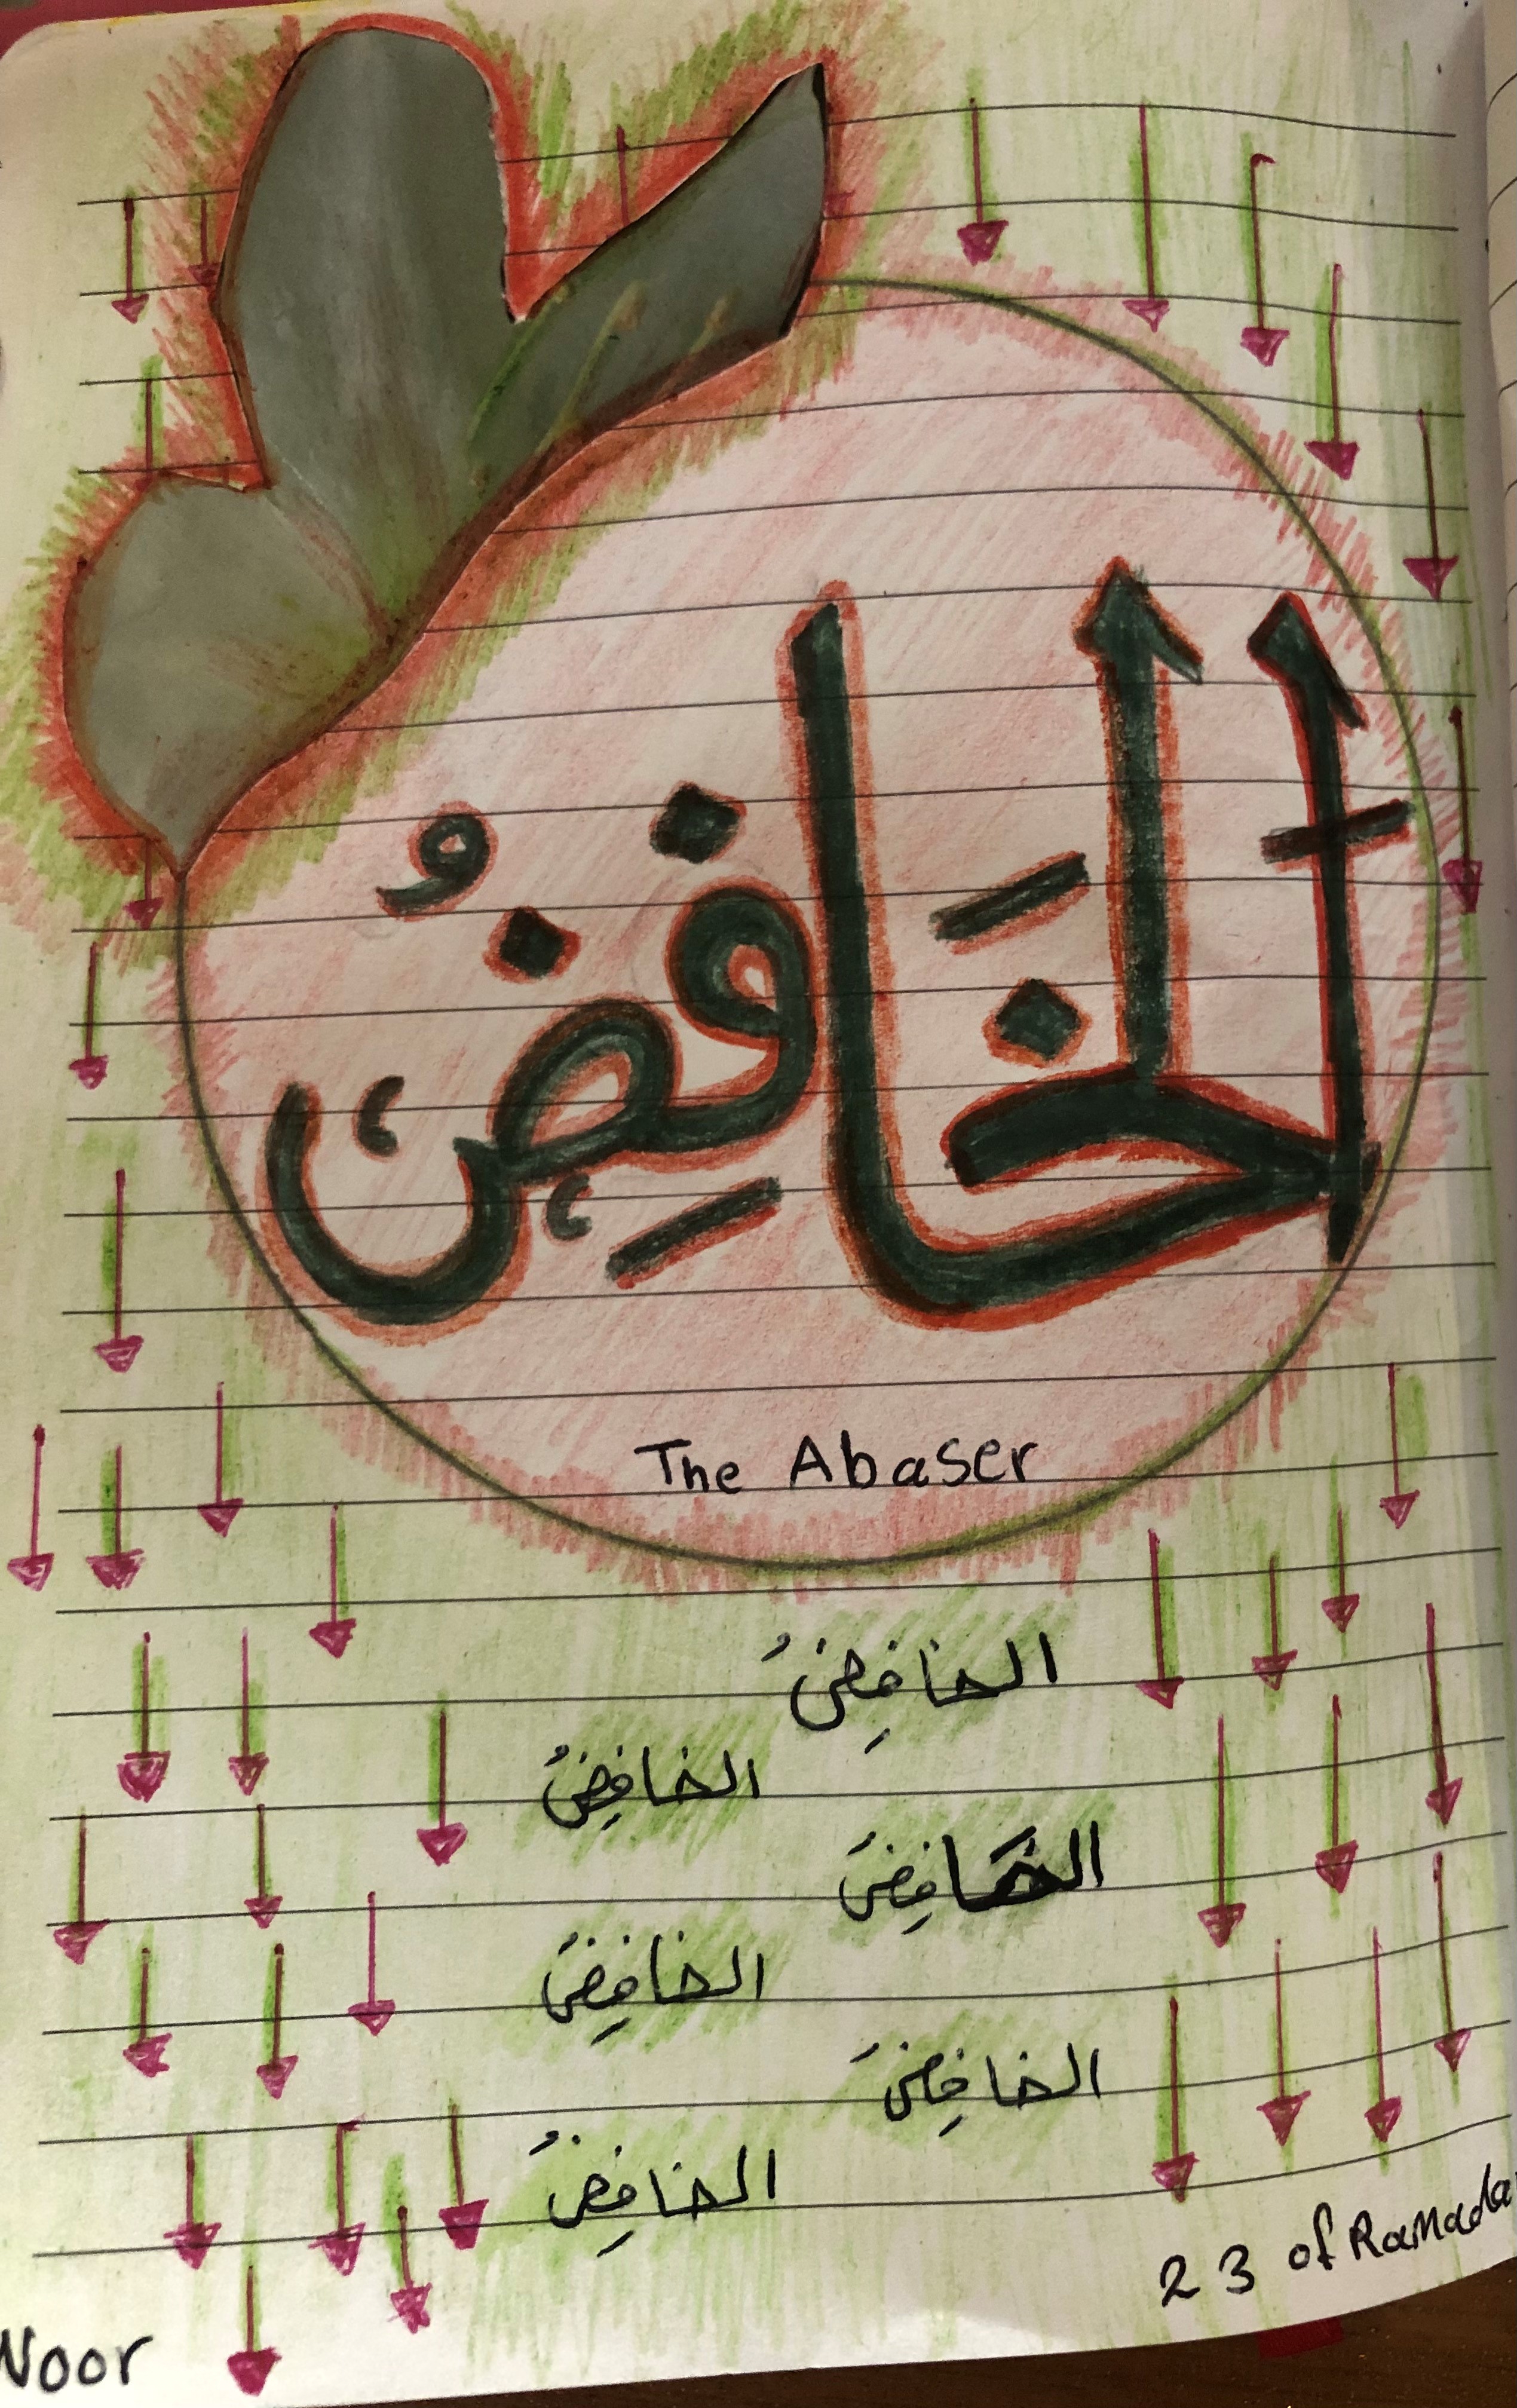 الخَافِضُ
The Abaser
الخافِضُ
الخافِضُ
الخَافِضُ
الخافِضُ
الخافِضُ
الخافِضُ
23 of Ramada
Noor